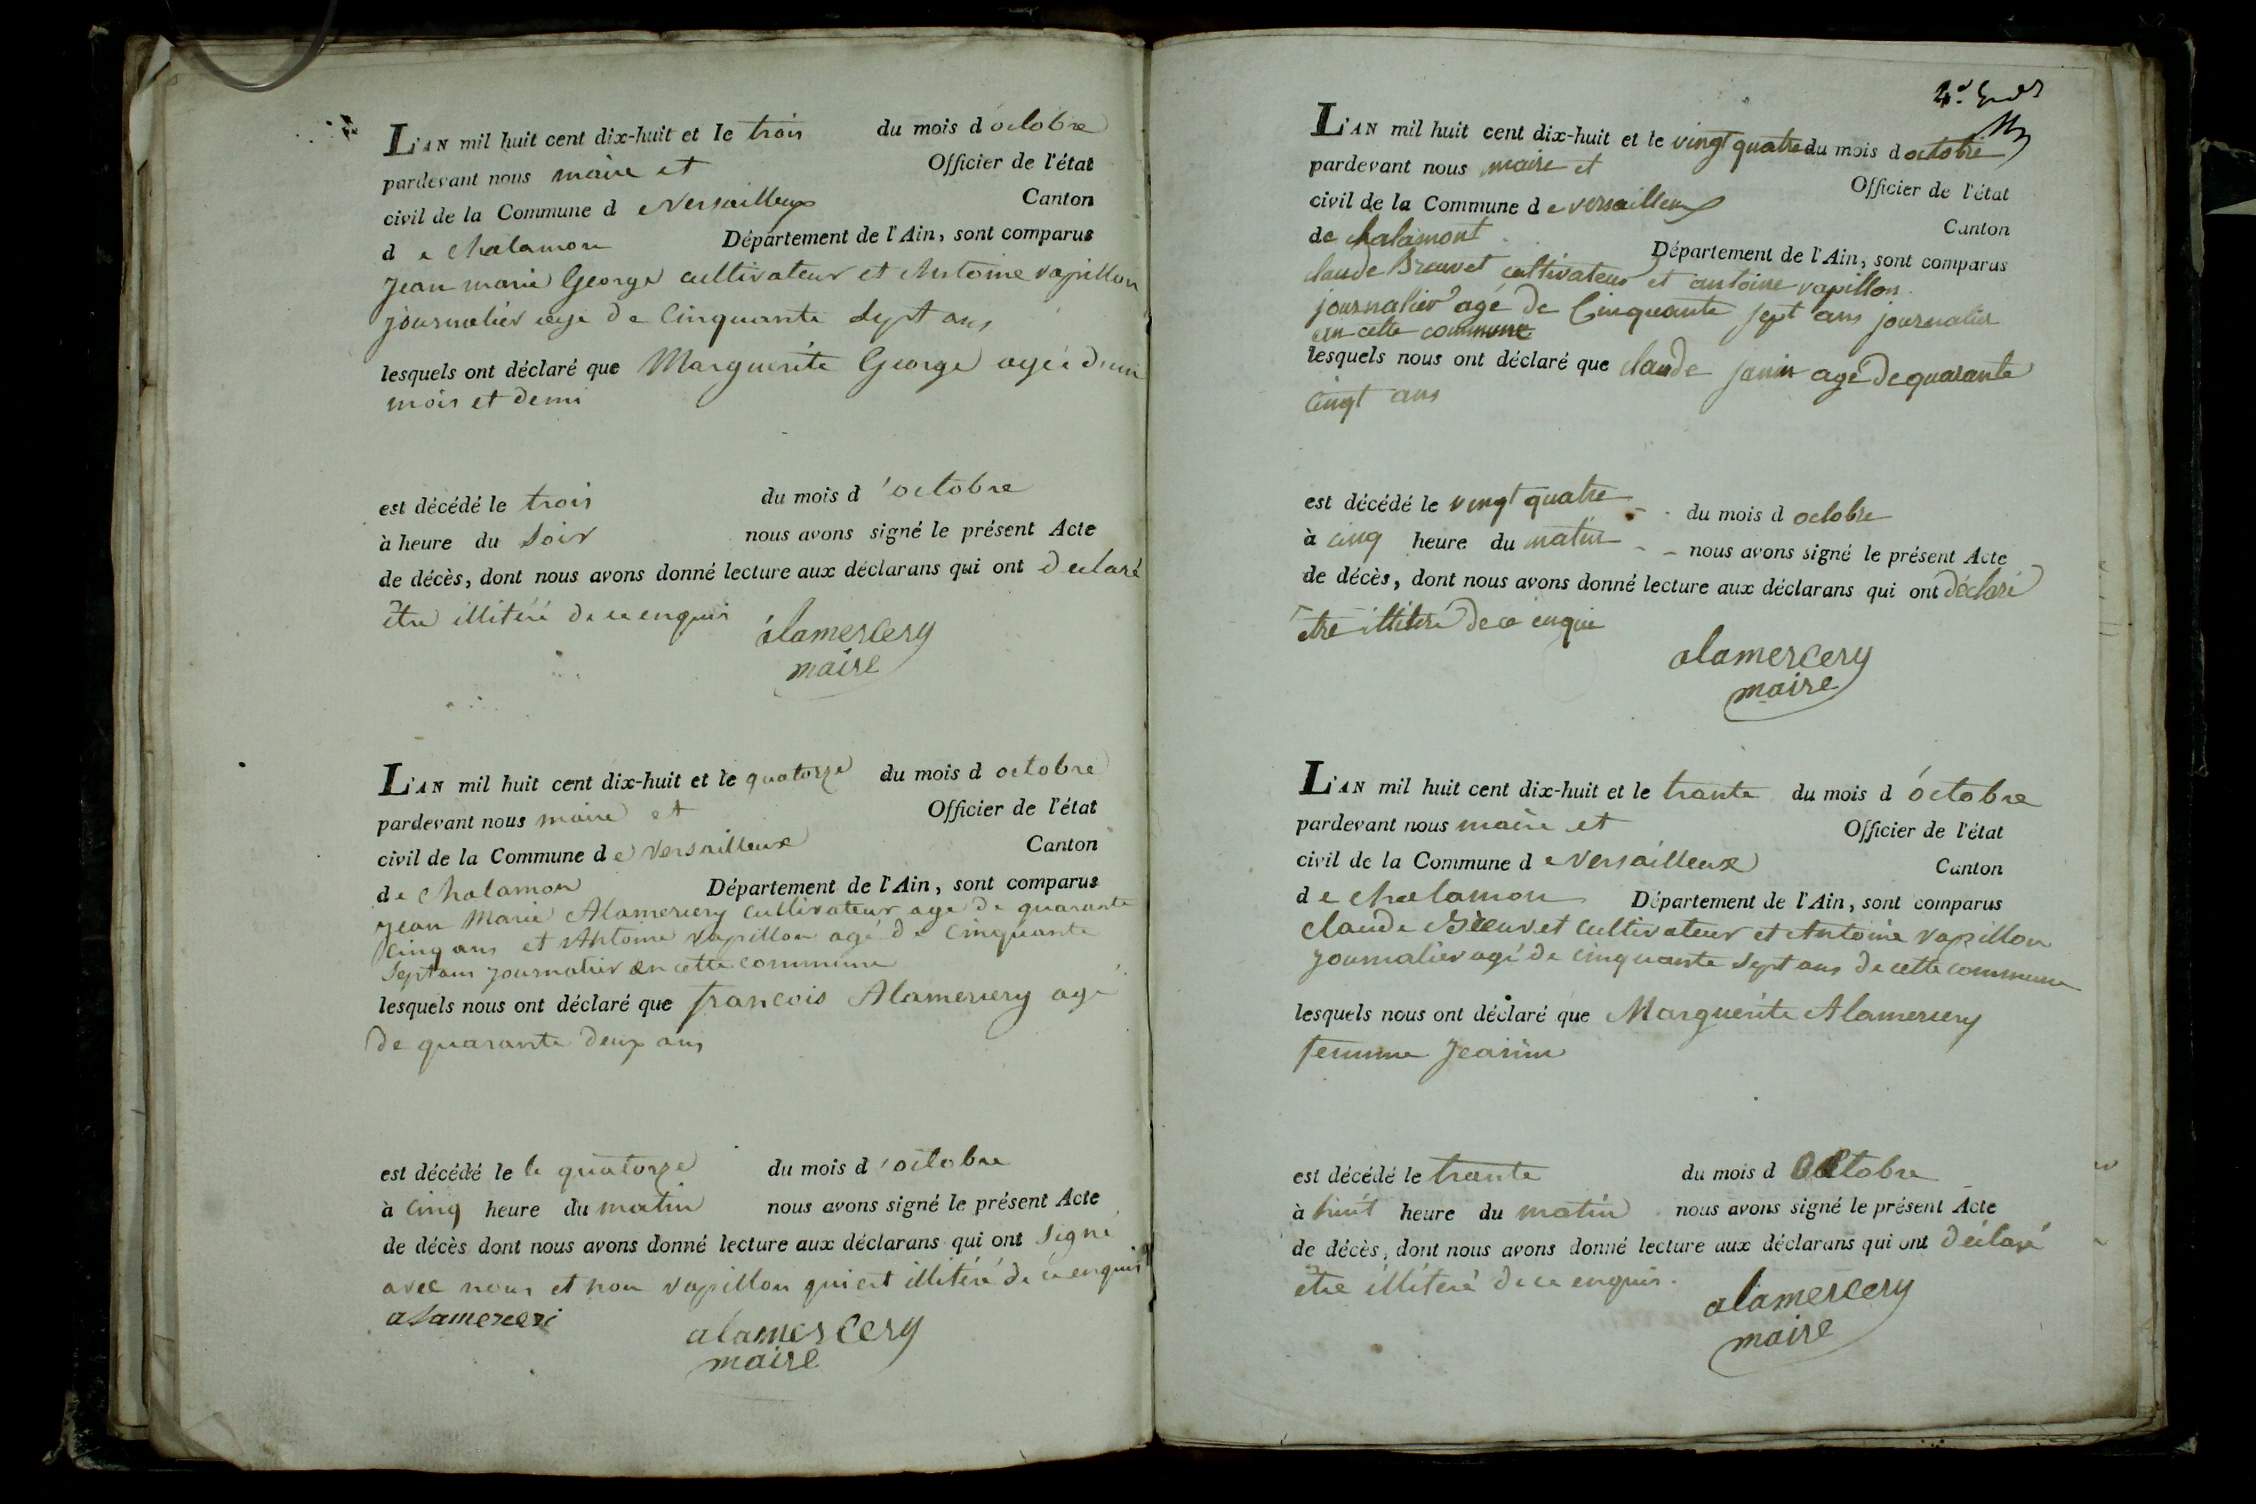 L'AN mil huit cent dix-huit et le trois du mois d'octobre
pardevant nous maire et Officier de l'état
civil de la Commune de Versailleux Canton
de chalamon Département de l'Ain, sont comparus
Jean marie George cultivateur et Antoine vapillon
journalier agé de Cinquante Sept ans
lesquels ont déclaré que Marguerite George agée d'un
mois et demi
est décédé le trois du mois d'octobre
à heure du Soir nous avons signé le présent Acte
de décès, dont nous avons donné lecture aux déclarans qui ont declaré
être illitéré de ce enquis
alamercery
maire
L'AN mil huit cent dix-huit et le quatorze du mois d octobre
pardevant nous maire et Officier de l'état
civil de la Commune de Versailleux Canton
de chalamon Département de l'Ain, sont comparus
Jean Marie Alamercery cultivateur agé de quarante
Cinq ans et Antoine vapillon agé de Cinquante
Sept ans journalier en cette commune
lesquels nous ont déclaré que francois Alamercery agé
de quarante deux ans
est décédé le le quatorze du mois d'octobre
à Cinq heure du matin nous avons signé le présent Acte
de décès dont nous avons donné lecture aux déclarans qui ont Signé
avec nous et non vapillon qui est illitéré de ce enquis
alamerceri
alamercery
maire
L'AN mil huit cent dix-huit et le vingt quatre du mois d octobre
pardevant nous maire et Officier de l'état
civil de la Commune de versailleux Canton
de chalamont Département de l'Ain, sont comparus
claude Breuvet cultivateur et antoine vapillon
journalier agé de Cinquante sept ans journalier
en cette commune
lesquels nous ont déclaré que claude janin agé de quarante
cingt ans
est décédé le vingt quatre du mois d octobre
à cinq heure du matin nous avons signé le présent Acte
de décès, dont nous avons donné lecture aux déclarans qui ont déclaré
etre illitéré de ce enquie
alamercery
maire
L'AN mil huit cent dix-huit et le trante du mois d'octobre
pardevant nous maire et Officier de l'état
civil de la Commune de Versailleux Canton
de chalamon Département de l'Ain, sont comparus
claude Breuvet Cultivateur et Antoine vapillon
journalier agé de cinquante sept ans de cette commune
lesquels nous ont déclaré que Marguerite Alamercery
femme Jeanin
est décédé le trante du mois d Octobre
à huit heure du matin nous avons signé le présent Acte
de décès, dont nous avons donné lecture aux déclarans qui ont déclaré
etre illitéré de ce enquis.
alamercery
maire